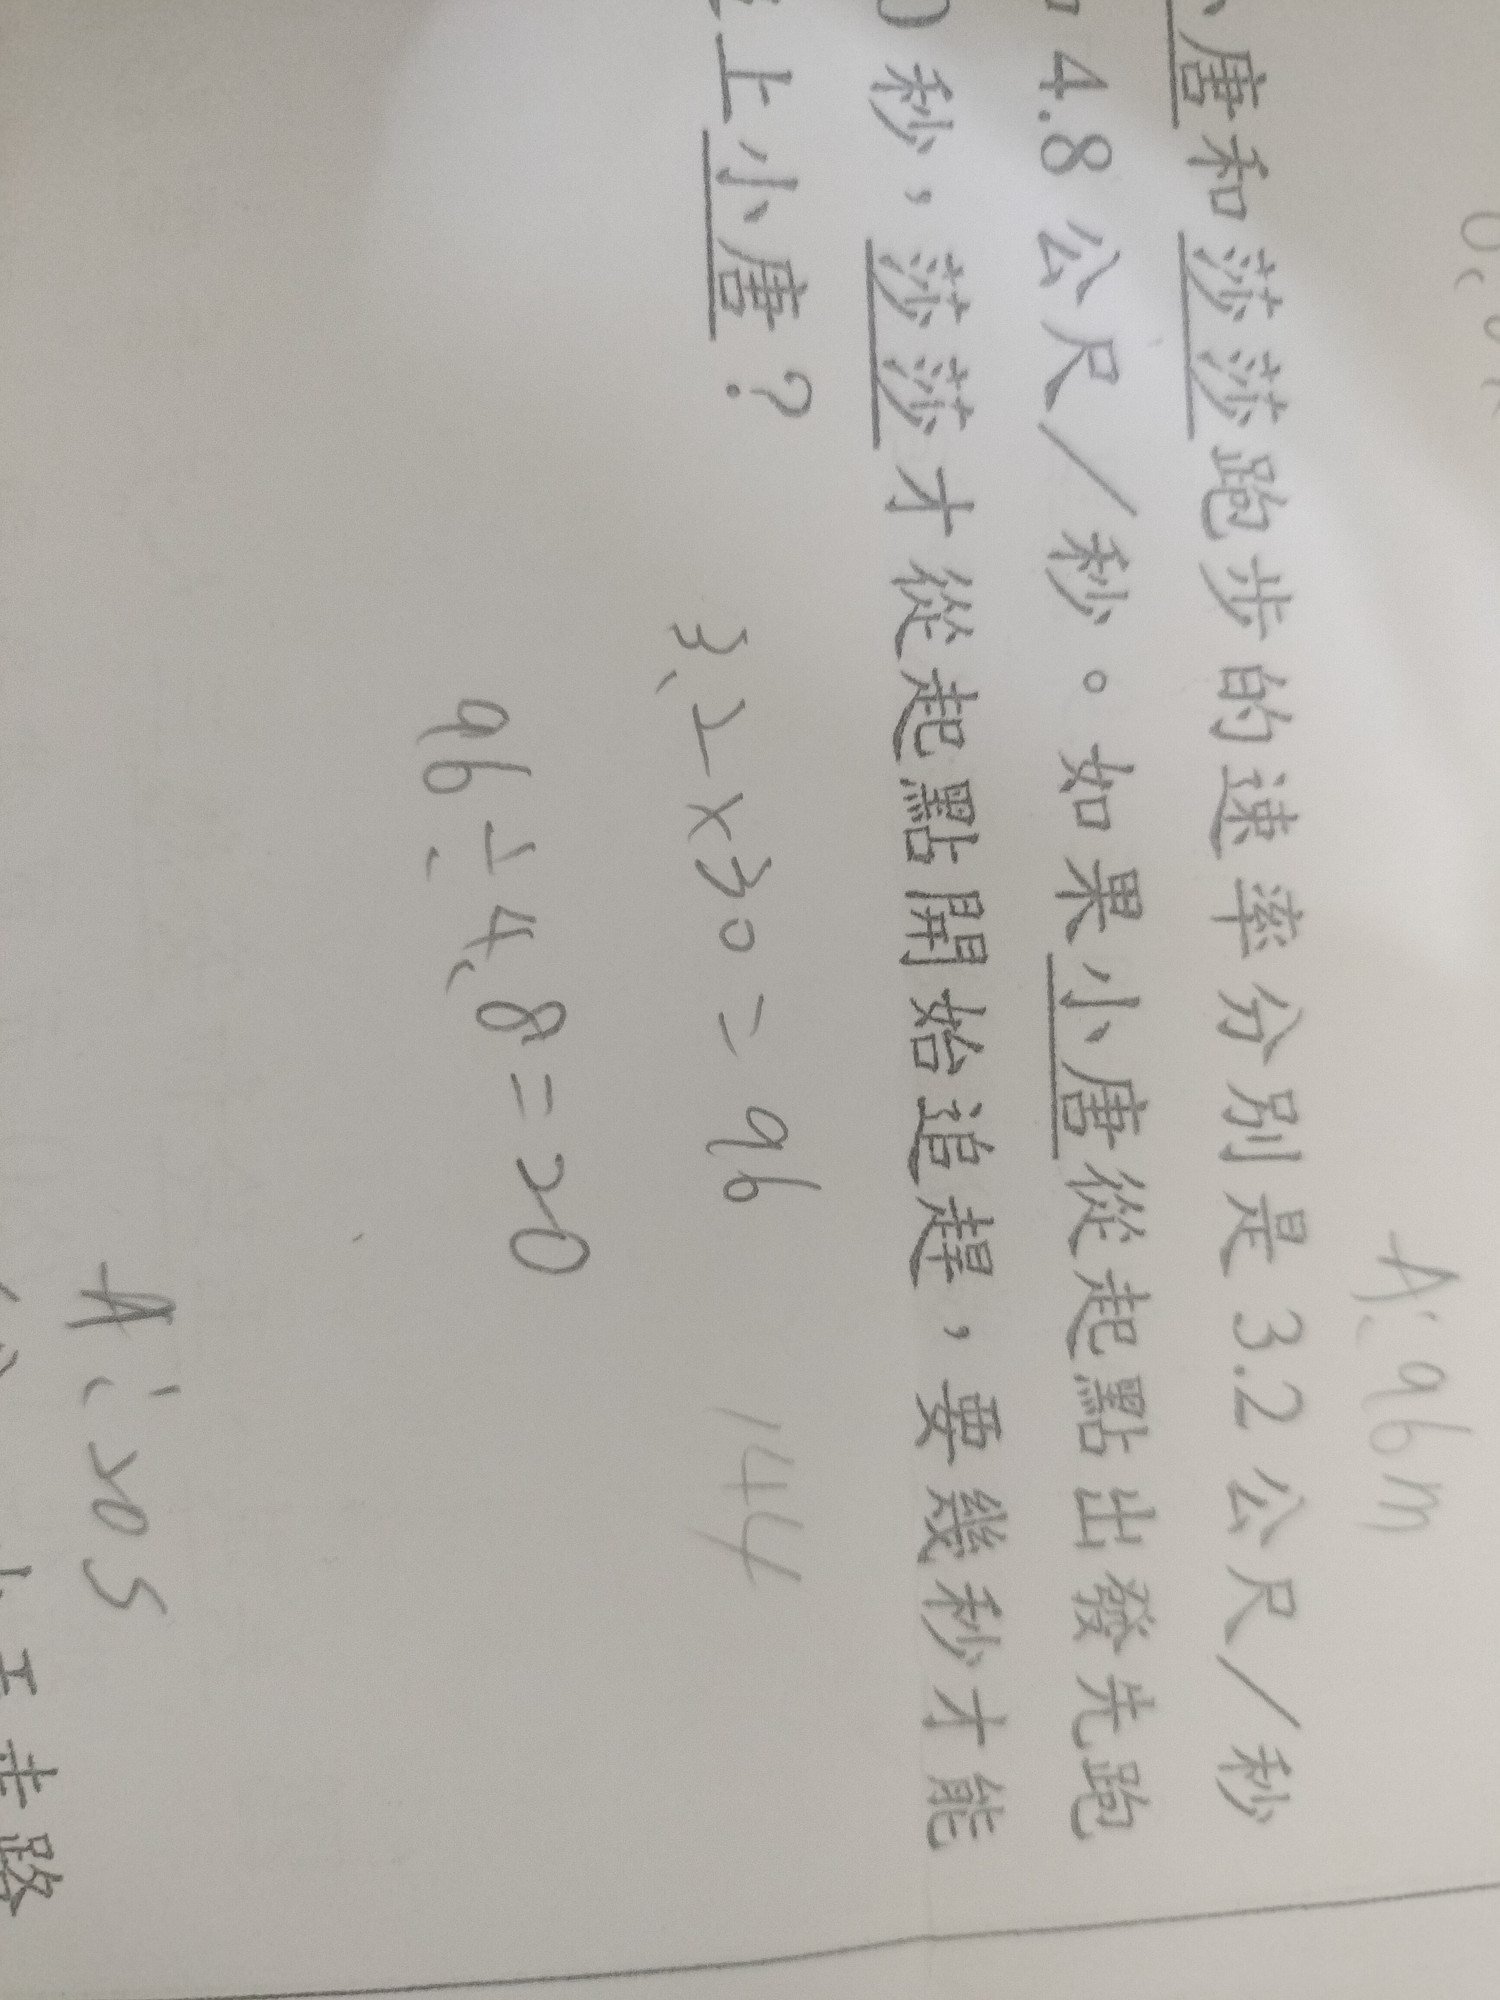 A:96m
唐和莎莎跑步的速率分別是3.2公尺/秒
4.8公尺/秒。如果小唐從起點出發先跑
0秒,莎莎才從起點開始追趕,要幾秒才能
上小唐?
3.2×30=96 144
96÷4.8=20
A:20s
走路